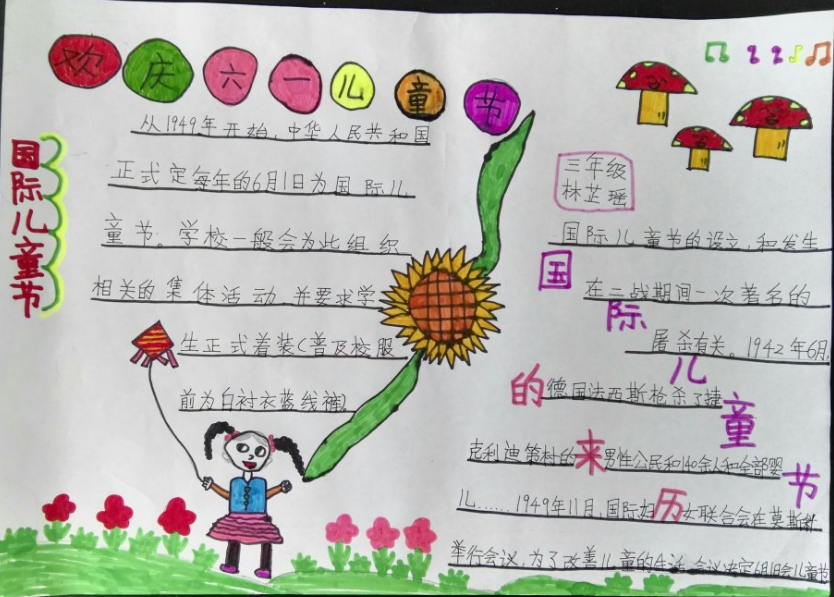 欢庆六一儿童节
国际儿童节
从1949年开始，中华人民共和国
正式定每年的6月1日为国际儿
童节。学校一般会为此组织
相关的集体活动，并要求学
生正式着装（普及校服
前为白衬衣蓝线裤）
三年级
林芷瑶
国际儿童节的来历
国际儿童节的设立，和发生
在二战期间一次著名的
屠杀有关。1942年6月，
德国法西斯枪杀了捷
克利迪策村的男性公民和140余人和全部婴
儿……1949年11月，国际妇女联合会在莫斯科
举行会议，为了改善儿童的生活，会议决定6月1日会儿童节